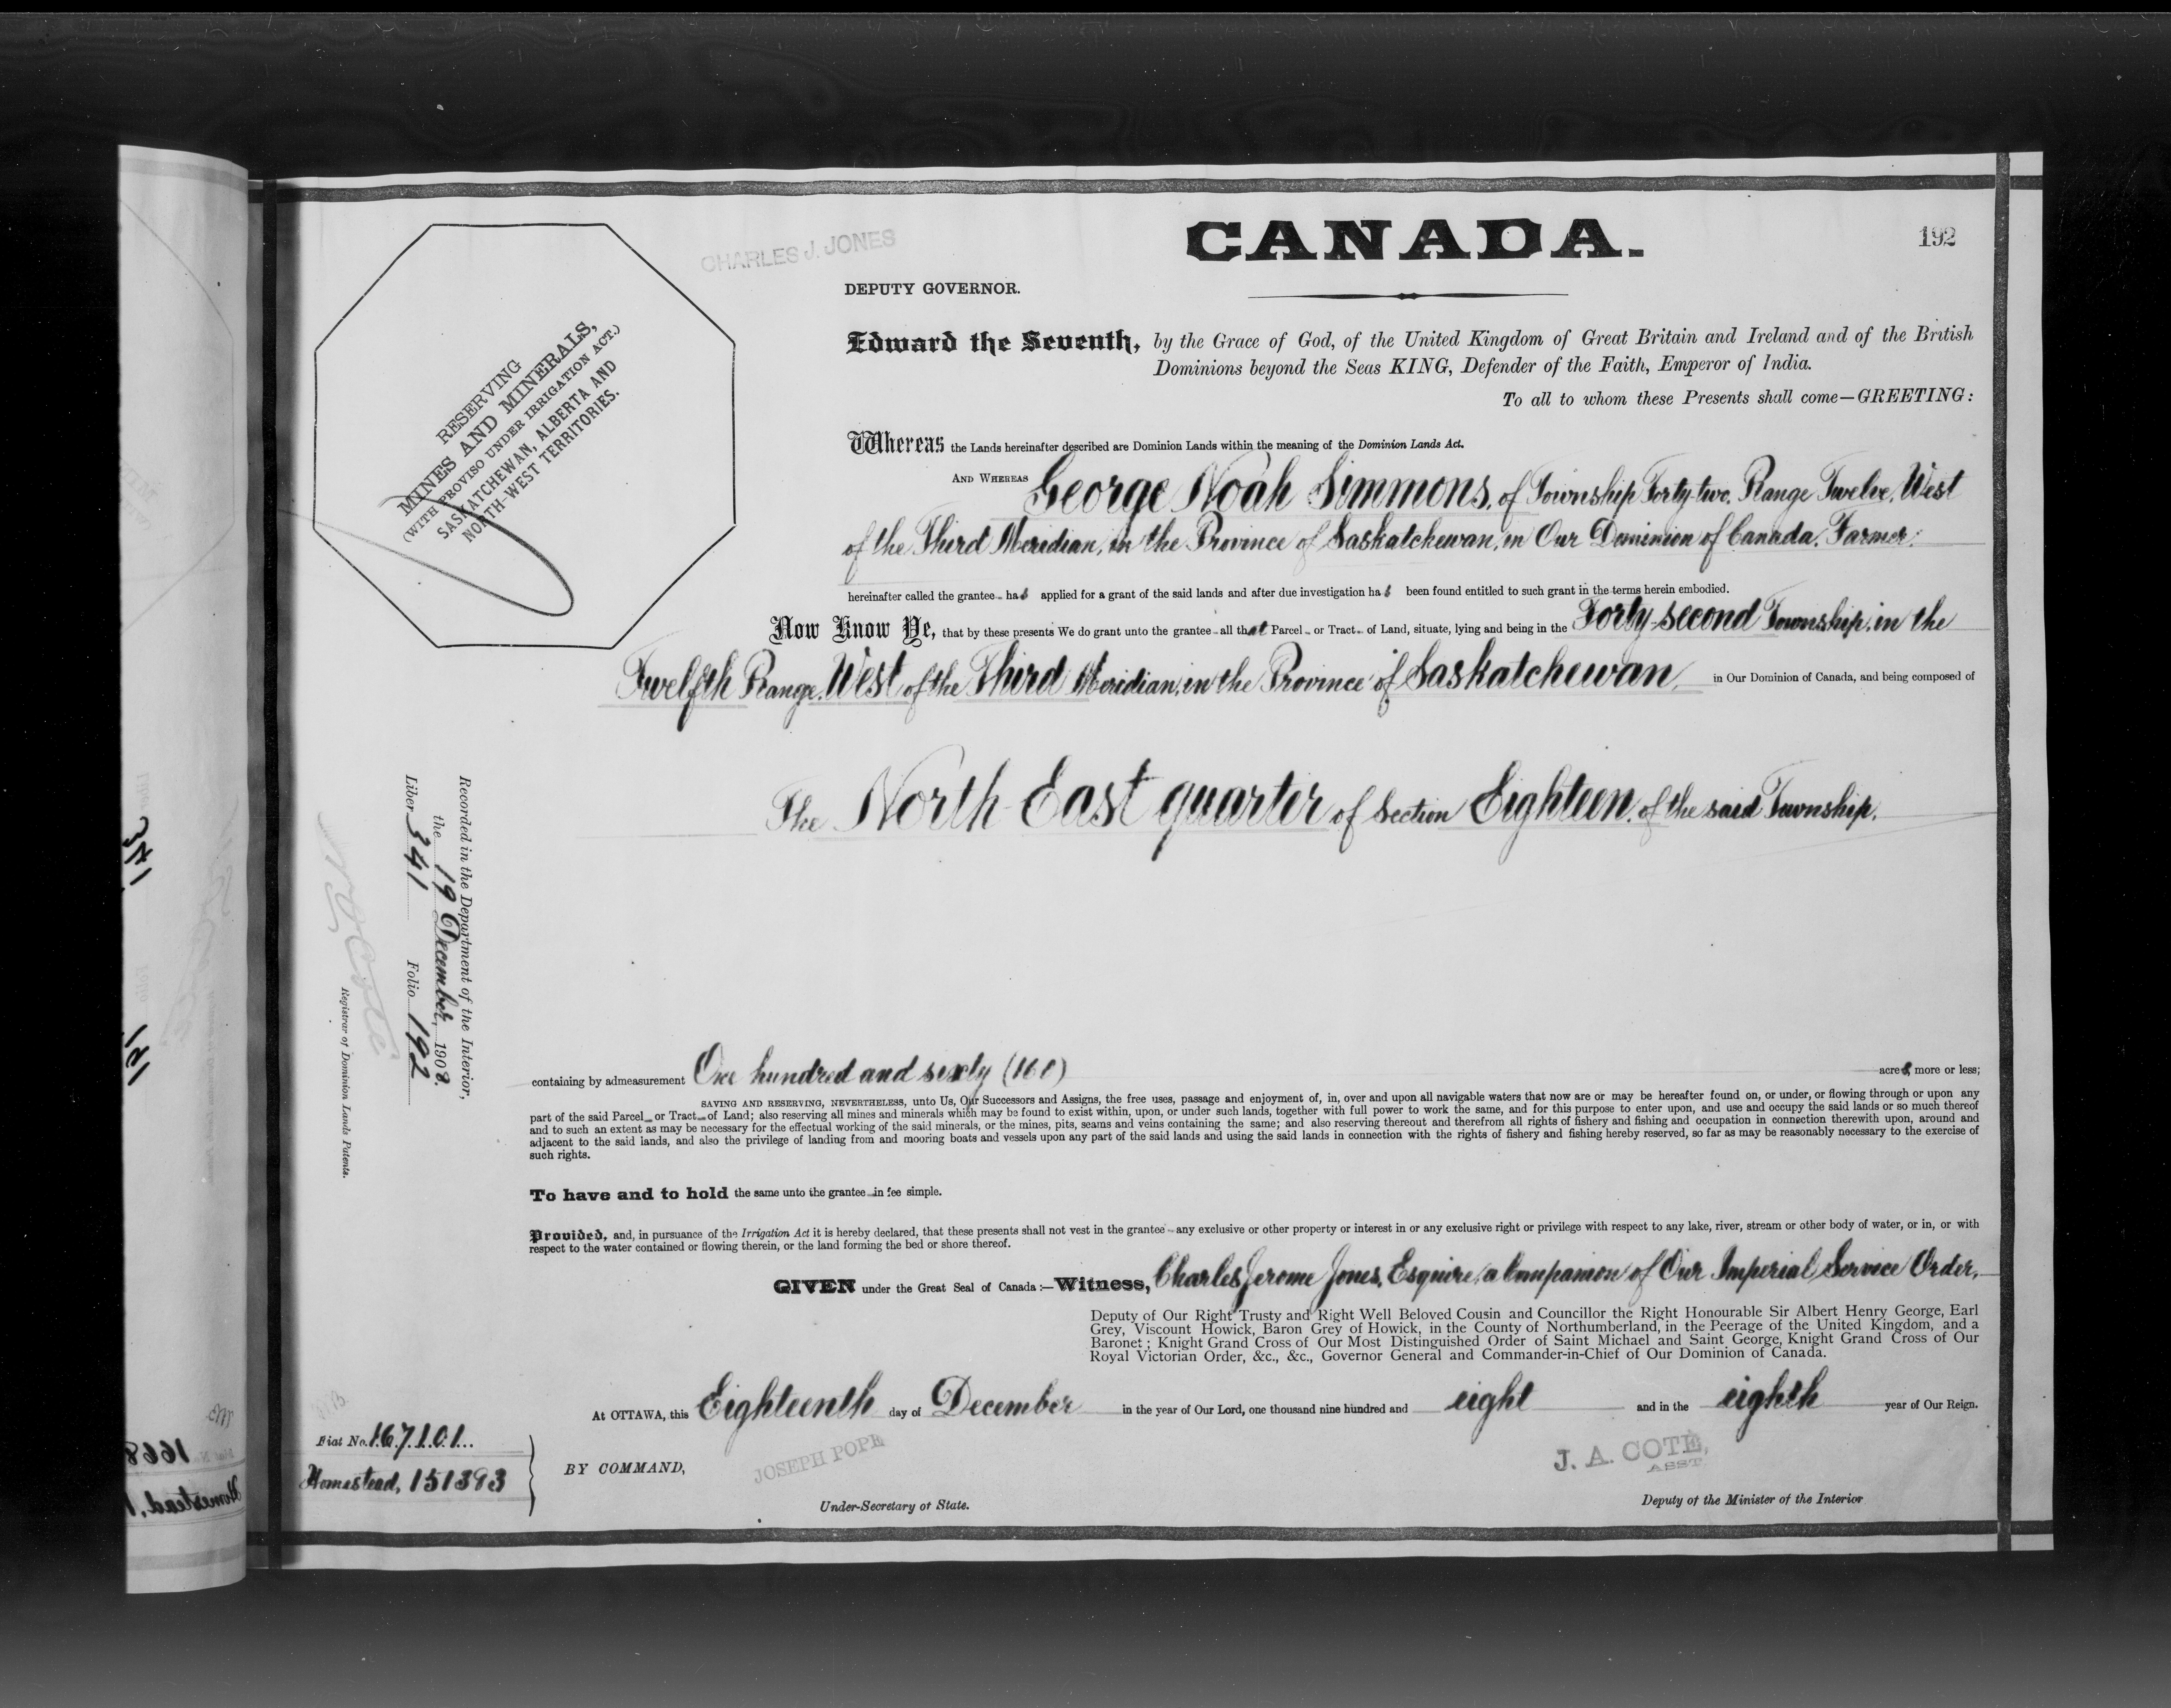 CANADA.
192
CHARLES J. JONES
DEPUTY GOVERNOR.
RESERVING
MINES AND MINERALS,
(WITH PROVISO UNDER IRRIGATION ACT.)
SASKATCHEWAN, ALBERTA AND
NORTH-WEST TERRITORIES.
Edward the Seventh, by the Grace of God, of the United Kingdom of Great Britain and Ireland and of the British
Dominions beyond the Seas KING, Defender of the Faith, Emperor of India.
To all to whom these Presents shall come—GREETING:
Whereas the Lands hereinafter described are Dominion Lands within the meaning of the Dominion Lands Act.
AND WHEREAS George Noah Simmons, of Township Forty-two, Range Twelve, West
of the Third Meridian, in the Province of Saskatchewan, in Our Dominion of Canada, Farmer:
hereinafter called the grantee has applied for a grant of the said lands and after due investigation has been found entitled to such grant in the terms herein embodied.
Now Know Ye, that by these presents We do grant unto the grantee all that Parcel or Tract of Land, situate, lying and being in the Forty-second Township, in the
Twelfth Range, West of the Third Meridian, in the Province of Saskatchewan, in Our Dominion of Canada, and being composed of
The North East quarter of Section Eighteen, of the said Township.
Recorded in the Department of the Interior,
the 19 December, 1908.
Liber 341 Folio 192
N. O. Coté
Registrar of Dominion Lands Patents.
containing by admeasurement One hundred and sixty (160) acres, more or less;
SAVING AND RESERVING, NEVERTHELESS, unto Us, Our Successors and Assigns, the free uses, passage and enjoyment of, in, over and upon all navigable waters that now are or may be hereafter found on, or under, or flowing through or upon any
part of the said Parcel or Tract of Land; also reserving all mines and minerals which may be found to exist within, upon, or under such lands, together with full power to work the same, and for this purpose to enter upon, and use and occupy the said lands or so much thereof
and to such an extent as may be necessary for the effectual working of the said minerals, or the mines, pits, seams and veins containing the same; and also reserving thereout and therefrom all rights of fishery and fishing and occupation in connection therewith upon, around and
adjacent to the said lands, and also the privilege of landing from and mooring boats and vessels upon any part of the said lands and using the said lands in connection with the rights of fishery and fishing hereby reserved, so far as may be reasonably necessary to the exercise of
such rights.
To have and to hold the same unto the grantee in fee simple.
Provided, and, in pursuance of the Irrigation Act it is hereby declared, that these presents shall not vest in the grantee any exclusive or other property or interest in or any exclusive right or privilege with respect to any lake, river, stream or other body of water, or in, or with
respect to the water contained or flowing therein, or the land forming the bed or shore thereof.
GIVEN under the Great Seal of Canada:—Witness, Charles Jerome Jones, Esquire, a Companion of Our Imperial Service Order,
Deputy of Our Right Trusty and Right Well Beloved Cousin and Councillor the Right Honourable Sir Albert Henry George, Earl
Grey, Viscount Howick, Baron Grey of Howick, in the County of Northumberland, in the Peerage of the United Kingdom, and a
Baronet; Knight Grand Cross of Our Most Distinguished Order of Saint Michael and Saint George, Knight Grand Cross of Our
Royal Victorian Order, &c., &c., Governor General and Commander-in-Chief of Our Dominion of Canada.
At OTTAWA, this Eighteenth day of December in the year of Our Lord, one thousand nine hundred and eight and in the eighth year of Our Reign.
Fiat No. 167101
Homestead, 151393
BY COMMAND,
JOSEPH POPE
Under-Secretary of State.
J. A. COTE,
ASST
Deputy of the Minister of the Interior